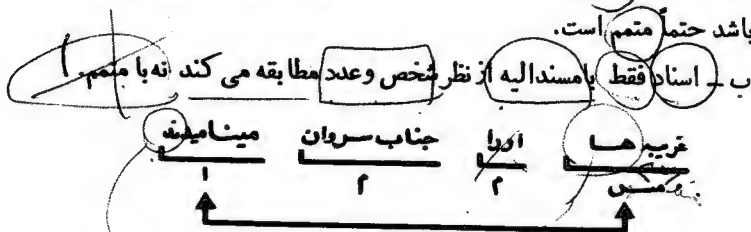 باشد حتماً متمم است.
ب ـ اسناد فقط بامسندالیه ازنظر شخص وعدد مطابقه می کند نه با متمم.
غریبه ها اورا جناب سروان مینامیدند
م م ا